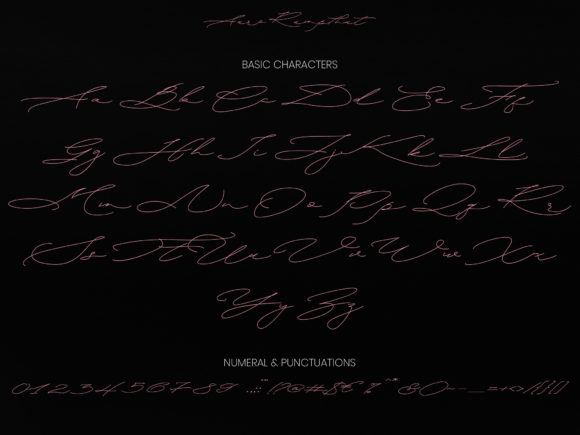 BASIC CHARACTERS
Aa Bb Cc Dd Ee Ff
Gg Hh Ii Jj Kk Ll
Mm Nn Oo Pp Qq Rr
Ss Tt Uu Vv Ww Xx
Yy Zz
NUMERAL & PUNCTUATIONS
0123456789